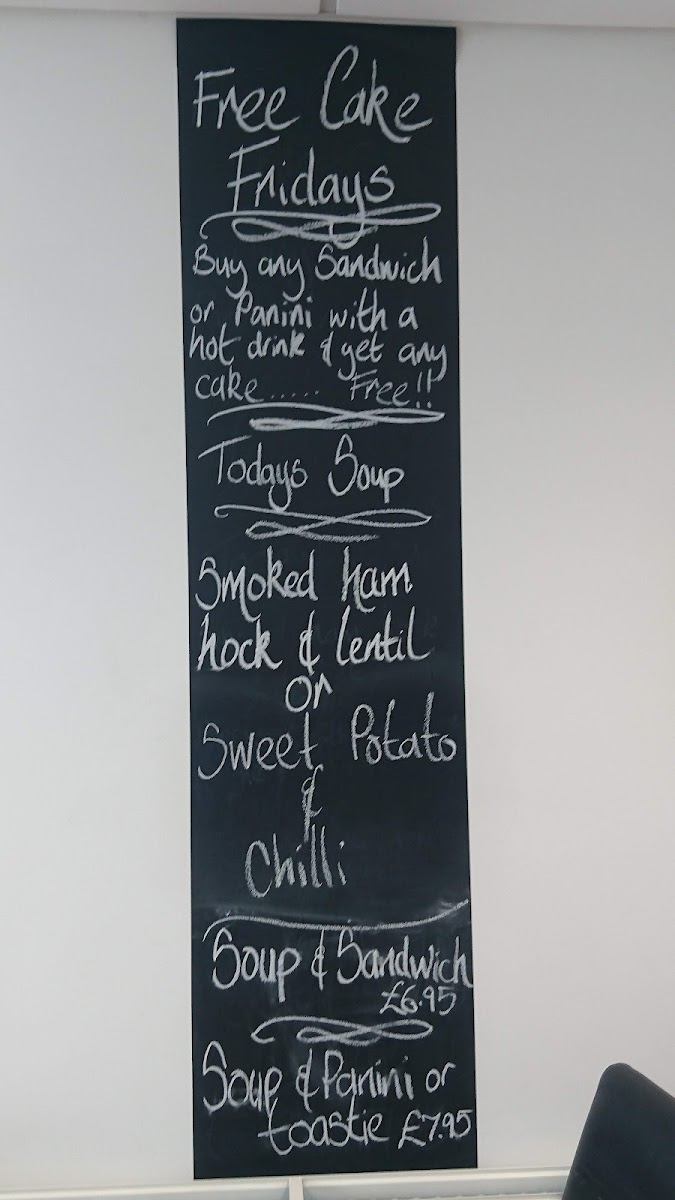 Free Cake
Fridays
Buy any Sandwich
or Panini with a
hot drink & get any
cake..... Free!!
Todays Soup
Smoked ham
hock & lentil
or
Sweet Potato
&
Chilli
Soup & Sandwich
£6.95
Soup & Panini or
toastie £7.95